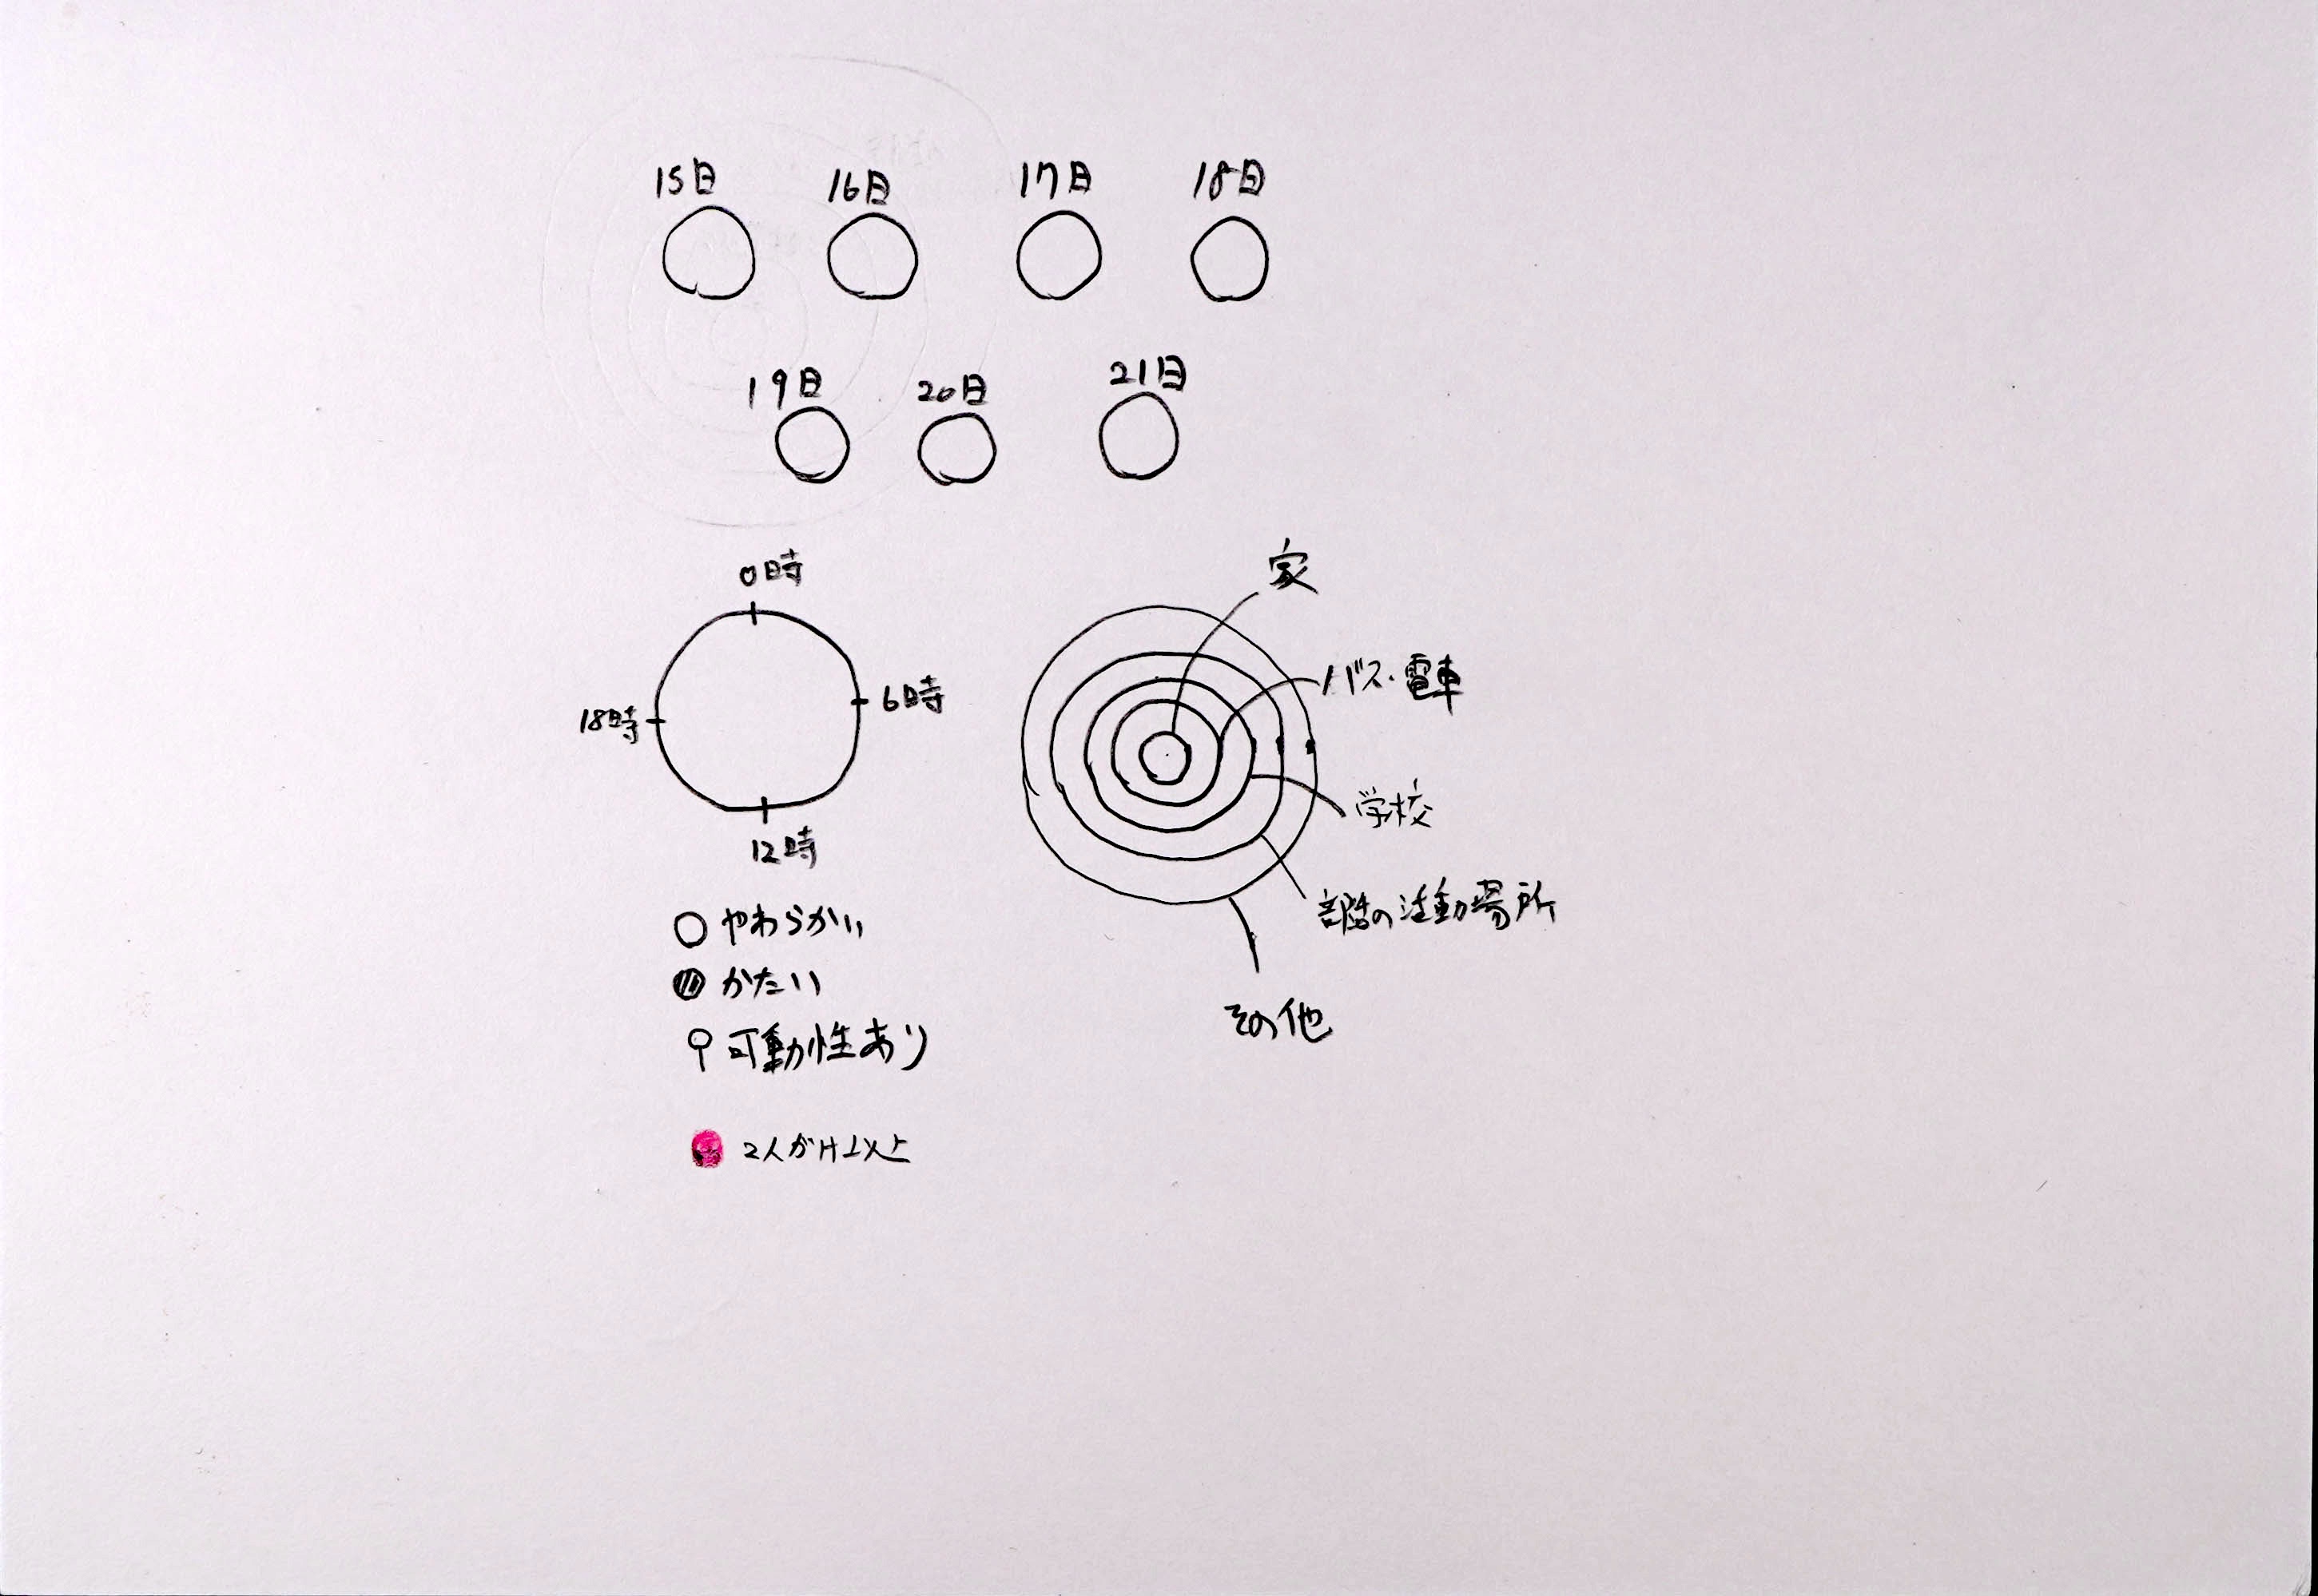 15日 16日 17日 18日
19日 20日 21日
0時
6時
18時
12時
家
バス・電車
学校
部活の活動場所
その他
やわらかい
かたい
可動性あり
2人がけ以上